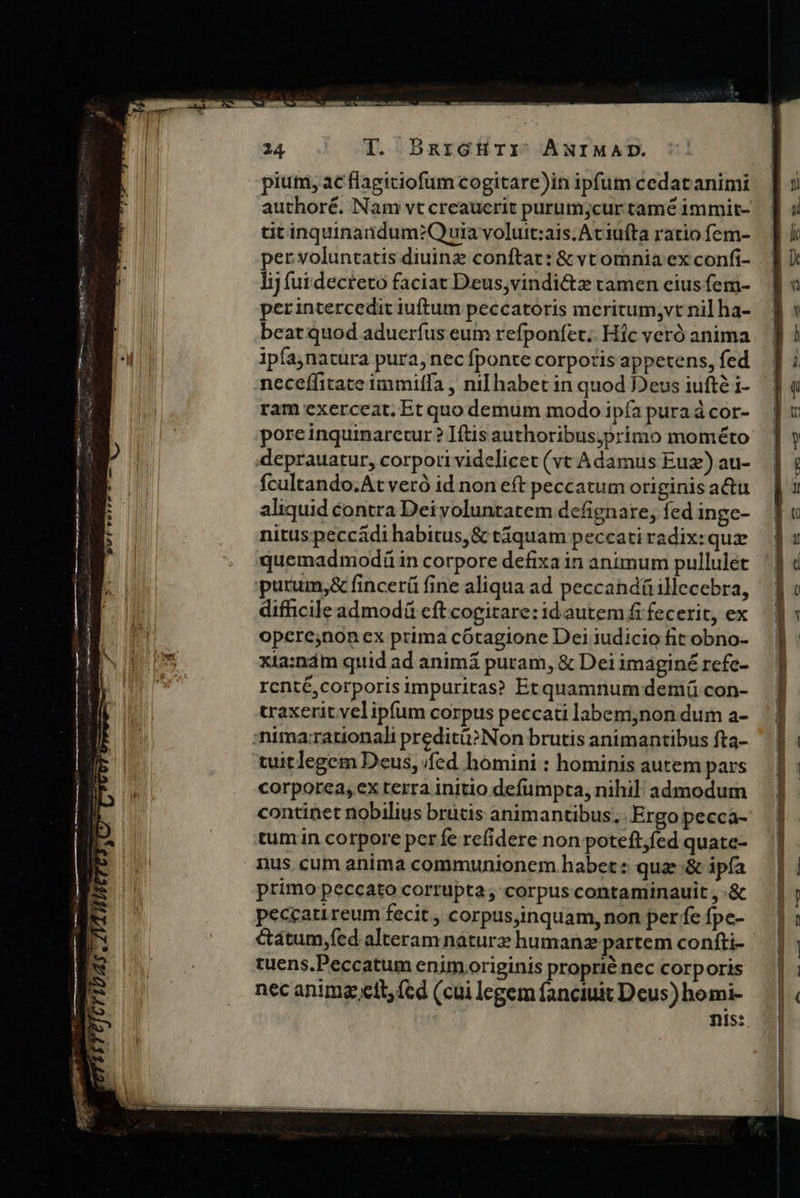 34 T. BRIGHTI ANIMAD.
pium, ac flagitiosum cogitare) in ipsum cedat animi
authorē. Nam vt creauerit purum, cur tamē immit-
tit inquinandum? Quia voluit: ais. At iusta ratio sem-
per voluntatis diuinæ constat: & vt omnia ex consi-
lij sui decreto faciat Deus, vindictæ tamen eius sem-
per intercedit iustum peccatoris meritum, vt nil ha-
beat quod aduersus eum responset. Hîc verò anima
ipsa, natura pura, nec sponte corporis appetens, sed
necessitate immissa, nil habet in quod Deus iustè i-
ram exerceat. Et quo demum modo ipsa pura à cor-
pore inquinaretur? Istis authoribus, primo momēto
deprauatur, corpori videlicet (vt Adamus Euæ) au-
scultando. At verò id non est peccatum originis actu
aliquid contra Dei voluntatem designare, sed inge-
nitus peccādi habitus, & tāquam peccati radix: quæ
quemadmodū in corpore defixa in animum pullulet
purum, & sincerū sine aliqua ad peccandū illecebra,
difficile admodū est cogitare: id autem si fecerit, ex
opere, non ex prima cōtagione Dei iudicio fit obno-
xia: nam quid ad animā puram, & Dei imaginē refe-
rentē, corporis impuritas? Et quamnum demū con-
traxerit vel ipsum corpus peccati labem, non dum a-
nima rationali preditū? Non brutis animantibus sta-
tuit legem Deus, sed homini: hominis autem pars
corporea, ex terra initio desumpta, nihil admodum
continet nobilius brutis animantibus. Ergo pecca-
tum in corpore per se residere non potest, sed quate-
nus cum anima communionem habet: quæ & ipsa
primo peccato corrupta, corpus contaminauit, &
peccati reum fecit, corpus, inquam, non per se spe-
ctatum, sed alteram naturæ humanæ partem consti-
tuens. Peccatum enim originis propriè nec corporis
nec animæ est, sed (cui legem sanciuit Deus) homi-
nis: